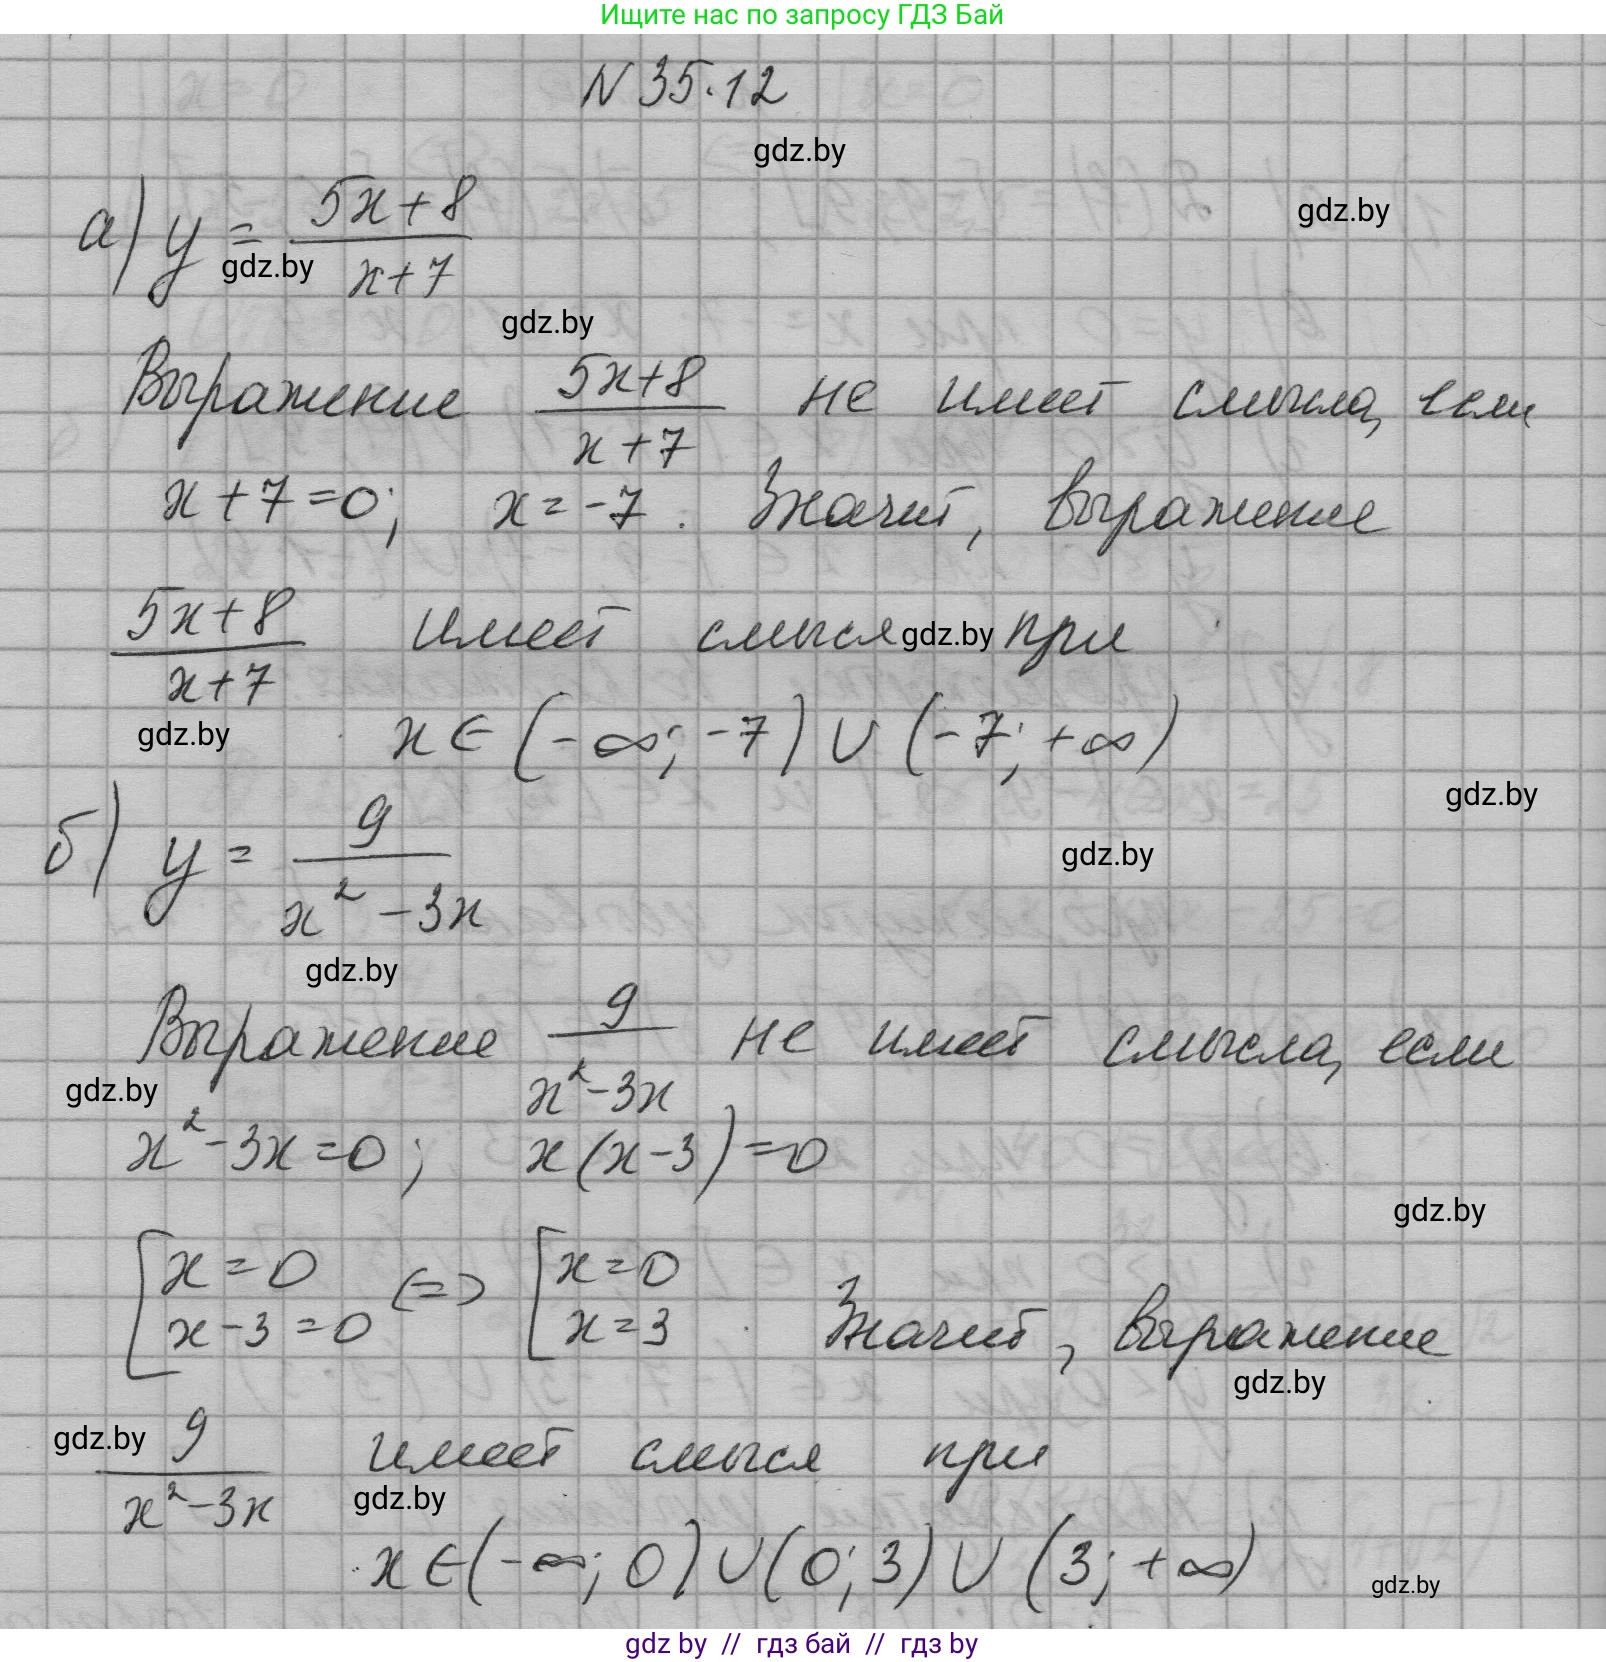 Ищите нас по запросу ГДЗ Бай
N 35.12
gdz.by
gdz.by
а) y = (5x+8)/(x+7)
gdz.by
gdz.by
Выражение (5x+8)/(x+7) не имеет смысла, если
x+7=0; x=-7. Значит, выражение
(5x+8)/(x+7) имеет смысл при
gdz.by
gdz.by
x∈(-∞; -7)∪(-7; +∞)
gdz.by
gdz.by
б) y = 9/(x²-3x)
gdz.by
Выражение 9/(x²-3x) не имеет смысла, если
gdz.by
x²-3x=0; x(x-3)=0
gdz.by
[x=0 x-3=0 (=) [x=0 x=3. Значит, выражение
gdz.by
gdz.by
9/(x²-3x) имеет смысл при
gdz.by
x∈(-∞; 0)∪(0; 3)∪(3; +∞)
gdz.by
gdz by // гдз бай // гдз by